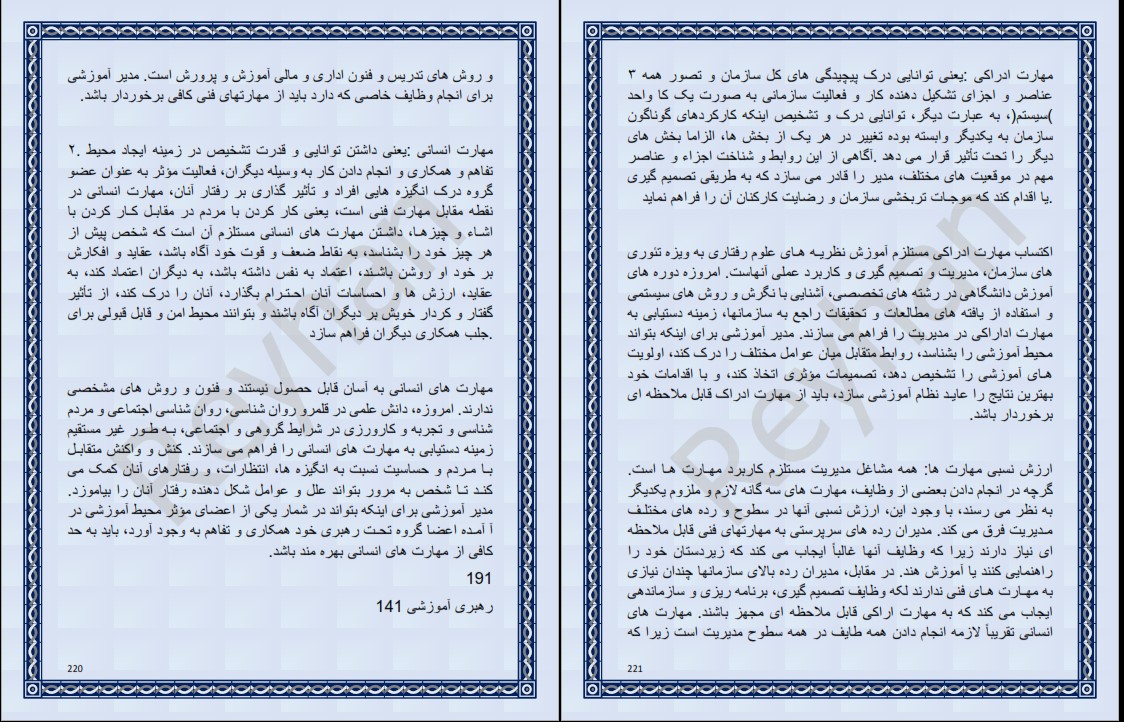 و روش های تدریس و فنون اداری و مالی آموزش و پرورش است. مدیر آموزشی
برای انجام وظایف خاصی که دارد باید از مهارتهای فنی کافی برخوردار باشد.
مهارت انسانی :یعنی داشتن توانایی و قدرت تشخیص در زمینه ایجاد محیط .۲
تفاهم و همکاری و انجام دادن کار به وسیله دیگران، فعالیت مؤثر به عنوان عضو
گروه درک انگیزه هایی افراد و تأثیر گذاری بر رفتار آنان، مهارت انسانی در
نقطه مقابل مهارت فنی است، یعنی کار کردن با مردم در مقابـل کـار کردن با
اشـاء و چیزهـا، داشـتن مهارت های انسانی مستلزم آن است که شخص پیش از
هر چیز خود را بشناسد، به نقاط ضعف و قوت خود آگاه باشد، عقاید و افکارش
بر خود او روشن باشـند، اعتماد به نفس داشته باشد، به دیگران اعتماد کند، به
عقاید، ارزش ها و احساسات آنان احـتـرام بگذارد، آنان را درک کند، از تأثیر
گفتار و کردار خویش بر دیگران آگاه باشند و بتوانند محیط امن و قابل قبولی برای
.جلب همکاری دیگران فراهم سازد
مهارت های انسانی به آسان قابل حصول نیستند و فنون و روش های مشخصی
ندارند. امروزه، دانش علمی در قلمرو روان شناسی، روان شناسی اجتماعی و مردم
شناسی و تجربه و کارورزی در شرایط گروهی و اجتماعی، بـه طـور غیر مستقیم
زمینه دستیابی به مهارت های انسانی را فراهم می سازند. کنش و واکنش متقابـل
بـا مـردم و حساسیت نسبت به انگیزه ها، انتظارات، و رفتارهای آنان کمک می
کنـد تـا شخص به مرور بتواند علل و عوامل شکل دهنده رفتار آنان را بیاموزد.
مدیر آموزشی برای اینکه بتواند در شمار یکی از اعضای مؤثر محیط آموزشی در
آ آمـده اعضا گروه تحـت رهبری خود همکاری و تفاهم به وجود آورد، باید به حد
کافی از مهارت های انسانی بهره مند باشد.
191
رهبری آموزشی 141
220
مهارت ادراکی :یعنی توانایی درک پیچیدگی های کل سازمان و تصور همه ۳
عناصر و اجزای تشکیل دهنده کار و فعالیت سازمانی به صورت یک کا واحد
)سیستم(، به عبارت دیگر، توانایی درک و تشخیص اینکه کارکردهای گوناگون
سازمان به یکدیگر وابسته بوده تغییر در هر یک از بخش ها، الزاما بخش های
دیگر را تحت تأثیر قرار می دهد .آگاهی از این روابط و شناخت اجزاء و عناصر
مهم در موقعیت های مختلف، مدیر را قادر می سازد که به طریقی تصمیم گیری
.یا اقدام کند که موجـات تربخشی سازمان و رضایت کارکنان آن را فراهم نماید
اکتساب مهارت ادراکی مستلزم آموزش نظریـه هـای علوم رفتاری به ویژه تئوری
های سازمان، مدیریت و تصمیم گیری و کاربرد عملی آنهاست. امروزه دوره های
آموزش دانشگاهی در رشته های تخصصی، آشنایی با نگرش و روش های سیستمی
و استفاده از یافته های مطالعات و تحقیقات راجع به سازمانها، زمینه دستیابی به
مهارت اداراکی در مدیریت را فراهم می سازند. مدیر آموزشی برای اینکه بتواند
محیط آموزشی را بشناسد، روابط متقابل میان عوامل مختلف را درک کند، اولویت
هـای آموزشی را تشخیص دهد، تصمیمات مؤثری اتخاذ کند، و با اقدامات خود
بهترین نتایج را عایـد نظام آموزشی سازد، باید از مهارت ادراک قابل ملاحظه ای
برخوردار باشد.
ارزش نسبی مهارت ها: همه مشاغل مدیریت مستلزم کاربرد مهـارت هـا است.
گرچه در انجام دادن بعضی از وظایف، مهارت های سه گانه لازم و ملزوم یکدیگر
به نظر می رسند، با وجود این، ارزش نسبی آنها در سطوح و رده های مختلـف
مـدیریت فرق می کند. مدیران رده های سرپرستی به مهارتهای فنی قابل ملاحظه
ای نیاز دارند زیرا که وظایف آنها غالباً ایجاب می کند که زیردستان خود را
راهنمایی کنند یا آموزش هند. در مقابل، مدیران رده بالای سازمانها چندان نیازی
به مهـارت هـای فنی ندارند لکه وظایف تصمیم گیری، برنامه ریزی و سازماندهی
ایجاب می کند که به مهارت اراکی قابل ملاحظه ای مجهز باشند. مهارت های
انسانی تقریباً لازمه انجام دادن همه طایف در همه سطوح مدیریت است زیرا که
221
Reyhan
Reyhan